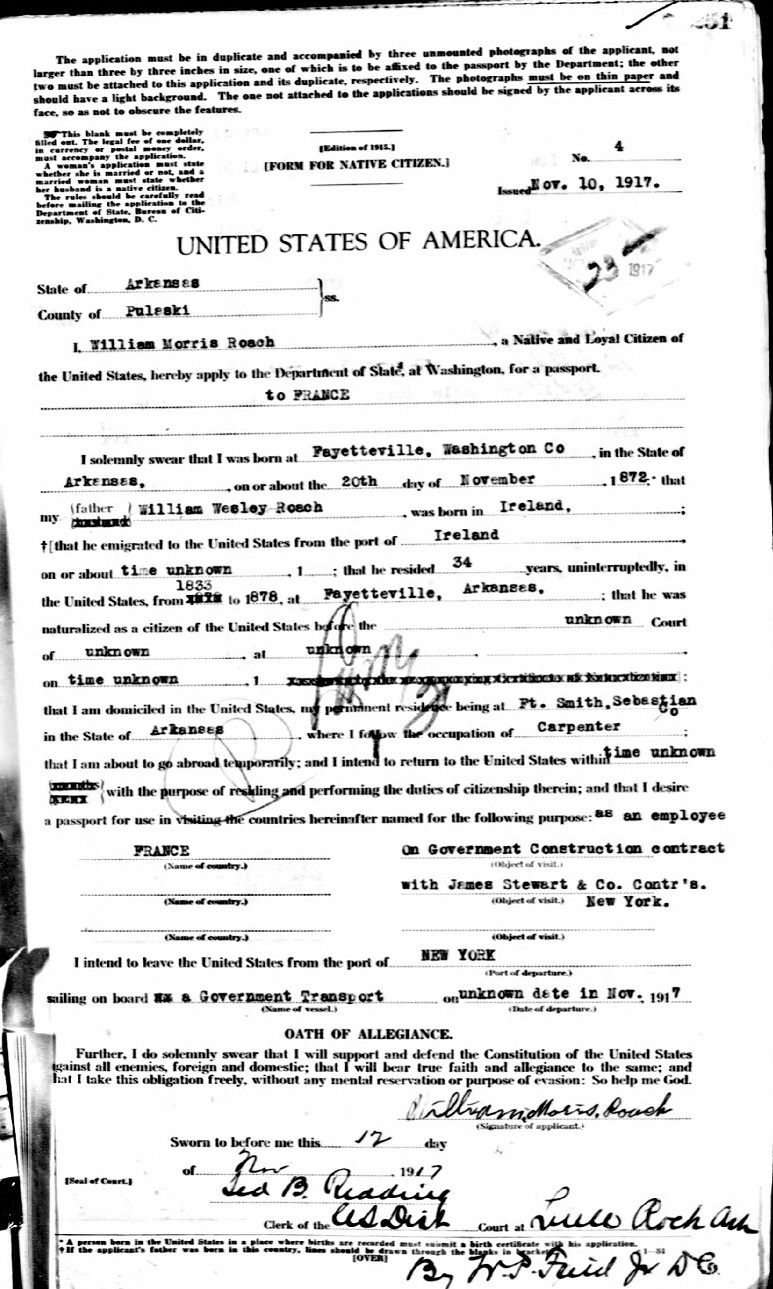 251
The application must be in duplicate and accompanied by three unmounted photographs of the applicant, not
larger than three by three inches in size, one of which is to be affixed to the passport by the Department; the other
two must be attached to this application and its duplicate, respectively. The photographs must be on thin paper and
should have a light background. The one not attached to the applications should be signed by the applicant across its
face, so as not to obscure the features.
This blank must be completely
filled out. The legal fee of one dollar,
in currency or postal money order,
must accompany the application.
A woman's application must state
whether she is married or not, and a
married woman must state whether
her husband is a native citizen.
The rules should be carefully read
before mailing the application to the
Department of State, Bureau of Citi-
zenship, Washington, D. C.
[Edition of 1915.]
[FORM FOR NATIVE CITIZEN.]
No. 4
Issued Nov. 10, 1917.
UNITED STATES OF AMERICA.
23 1917
State of Arkansas
County of Pulaski
ss.
I, William Morris Roach, a Native and Loyal Citizen of
the United States, hereby apply to the Department of State, at Washington, for a passport.
to FRANCE
I solemnly swear that I was born at Fayetteville, Washington Co, in the State of
Arkansas, , on or about the 20th day of November, 1872; that
my {father husband} William Wesley Roach, was born in Ireland, ;
†[that he emigrated to the United States from the port of Ireland
on or about time unknown, 1 ; that he resided 34 years, uninterruptedly, in
1833
the United States, from to 1878, at Fayetteville, Arkansas, ; that he was
naturalized as a citizen of the United States before the unknown Court
of unknown, at unknown,
on time unknown, 1 :
that I am domiciled in the United States, my permanent residence being at Ft. Smith, Sebastian
Co
in the State of Arkansas, where I follow the occupation of Carpenter ;
that I am about to go abroad temporarily; and I intend to return to the United States within time unknown
with the purpose of residing and performing the duties of citizenship therein; and that I desire
a passport for use in visiting the countries hereinafter named for the following purpose: as an employee
FRANCE
(Name of country.)
On Government Construction contract
(Object of visit.)
(Name of country.)
with James Stewart & Co. Contr's.
(Object of visit.) New York.
(Name of country.)
(Object of visit.)
I intend to leave the United States from the port of NEW YORK
(Port of departure.)
sailing on board a Government Transport on unknown date in Nov. 1917
(Name of vessel.) (Date of departure.)
OATH OF ALLEGIANCE.
Further, I do solemnly swear that I will support and defend the Constitution of the United States
against all enemies, foreign and domestic; that I will bear true faith and allegiance to the same; and
that I take this obligation freely, without any mental reservation or purpose of evasion: So help me God.
William Morris Roach
(Signature of applicant.)
Sworn to before me this 12 day
of Nov, 1917
[Seal of Court.]
Sed B. Redding
Clerk of the US Dist Court at Little Rock Ark
* A person born in the United States in a place where births are recorded must submit a birth certificate with his application.
† If the applicant's father was born in this country, lines should be drawn through the blanks in brackets.
[OVER]
By W.P. Feild Jr D C